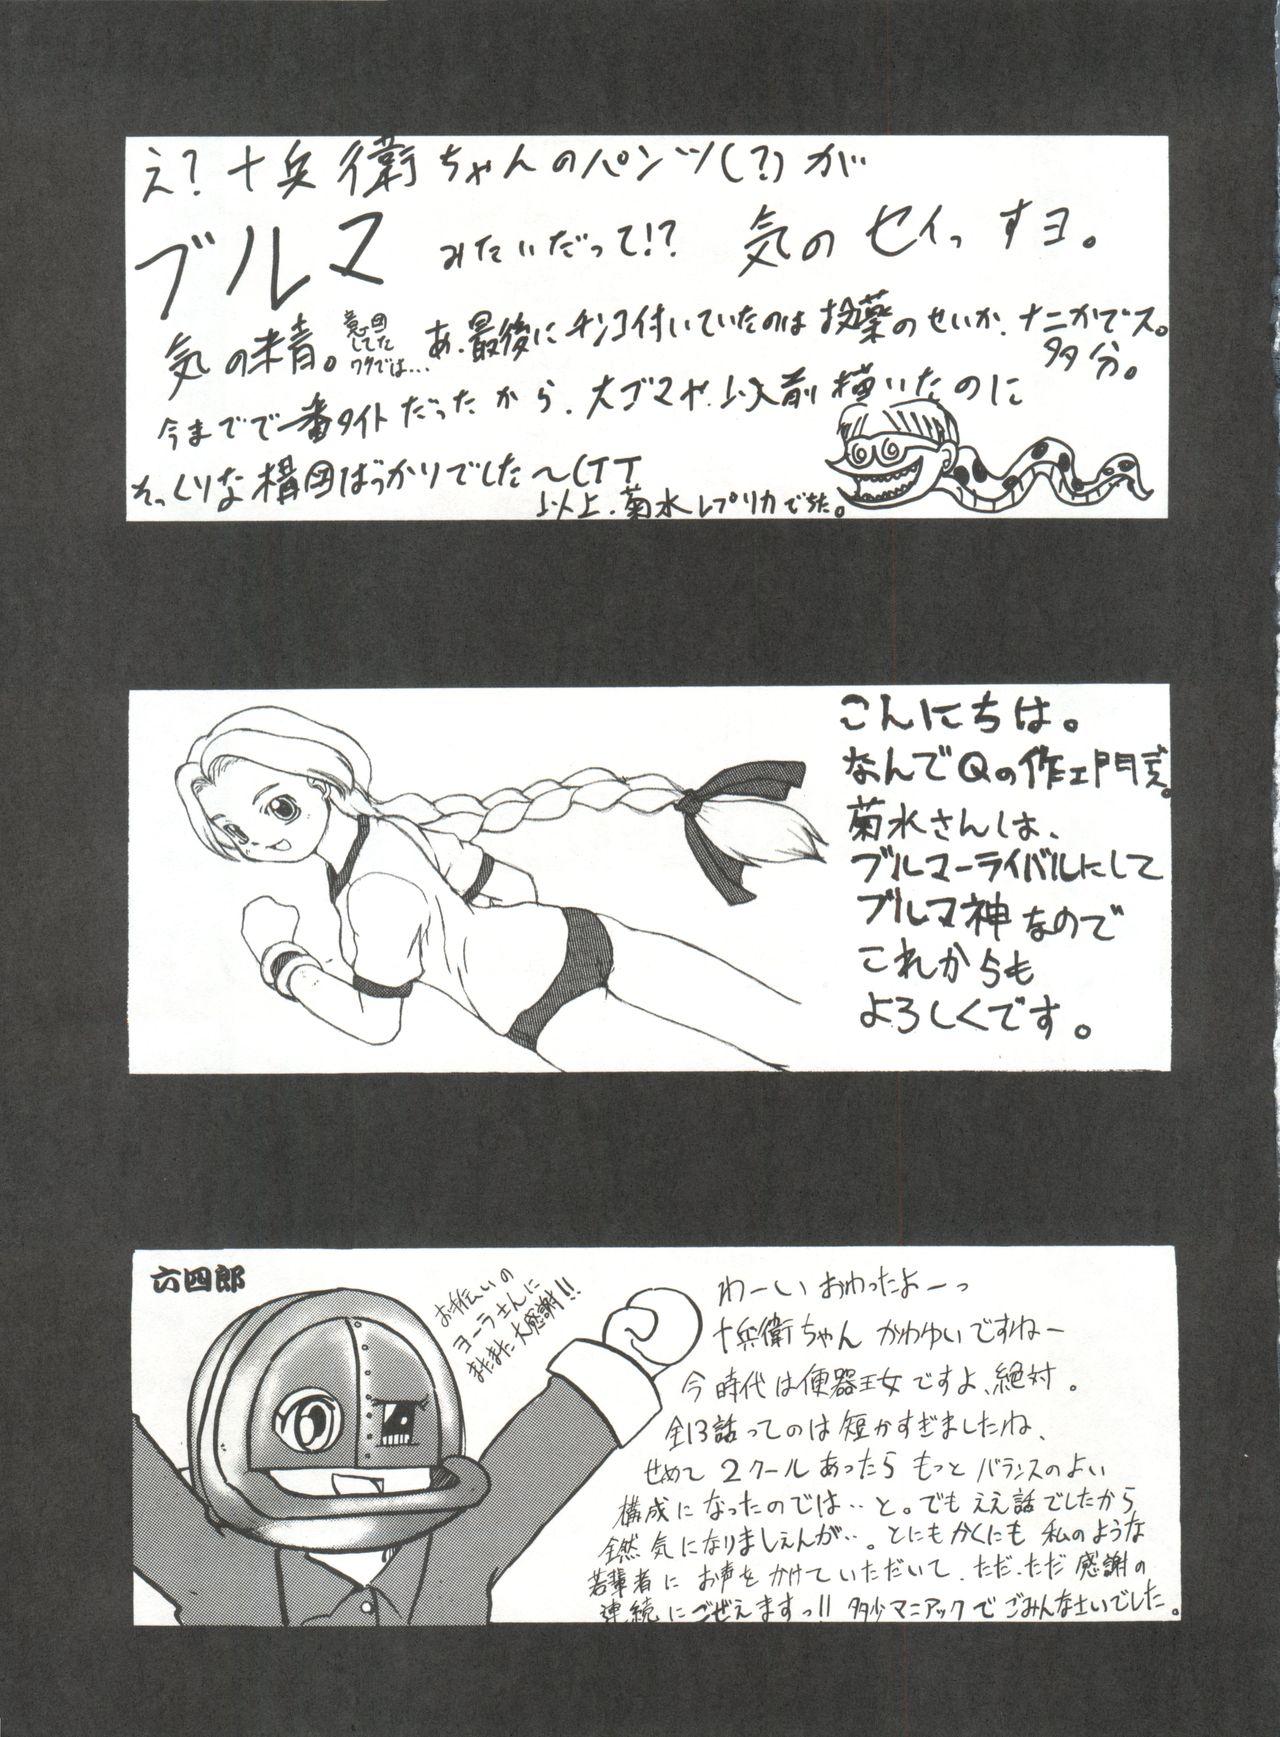 え?十兵衛ちゃんのパンツ(?)が
ブルマ みたいだって!? 気のセイっすヨ。
気の精。
意図
してた
ワケでは…
あ、最後にチンコ付いていたのは投薬のせいか、ナニかでス。
多分。
今までで一番タイトだったから、大ゴマや、以前描いたのに
そっくりな構図ばっかりでした〜(TT
以上、菊水レプリカでちた。
こんにちは。
なんでQの作エ門だ。
菊水さんは、
ブルマーライバルにして
ブルマ神なので
これからも
よろしくです。
六四郎
お手伝いの
ヨーラさんに
またまた大感謝!!
わーい おわったよーっ
十兵衛ちゃん かわゆいですねー
今時代は便器王女ですよ、絶対。
全13話ってのは短かすぎましたね、
せめて2クールあったら もっと バランスのよい
構成になったのでは‥と。でもええ話でしたから
全然気になりましぇんが‥。とにもかくにも 私のような
若輩者に お声をかけていただいて、ただ、ただ 感謝の
連続にごぜえますっ!! 多少マニアックで ごみんなさいでした。